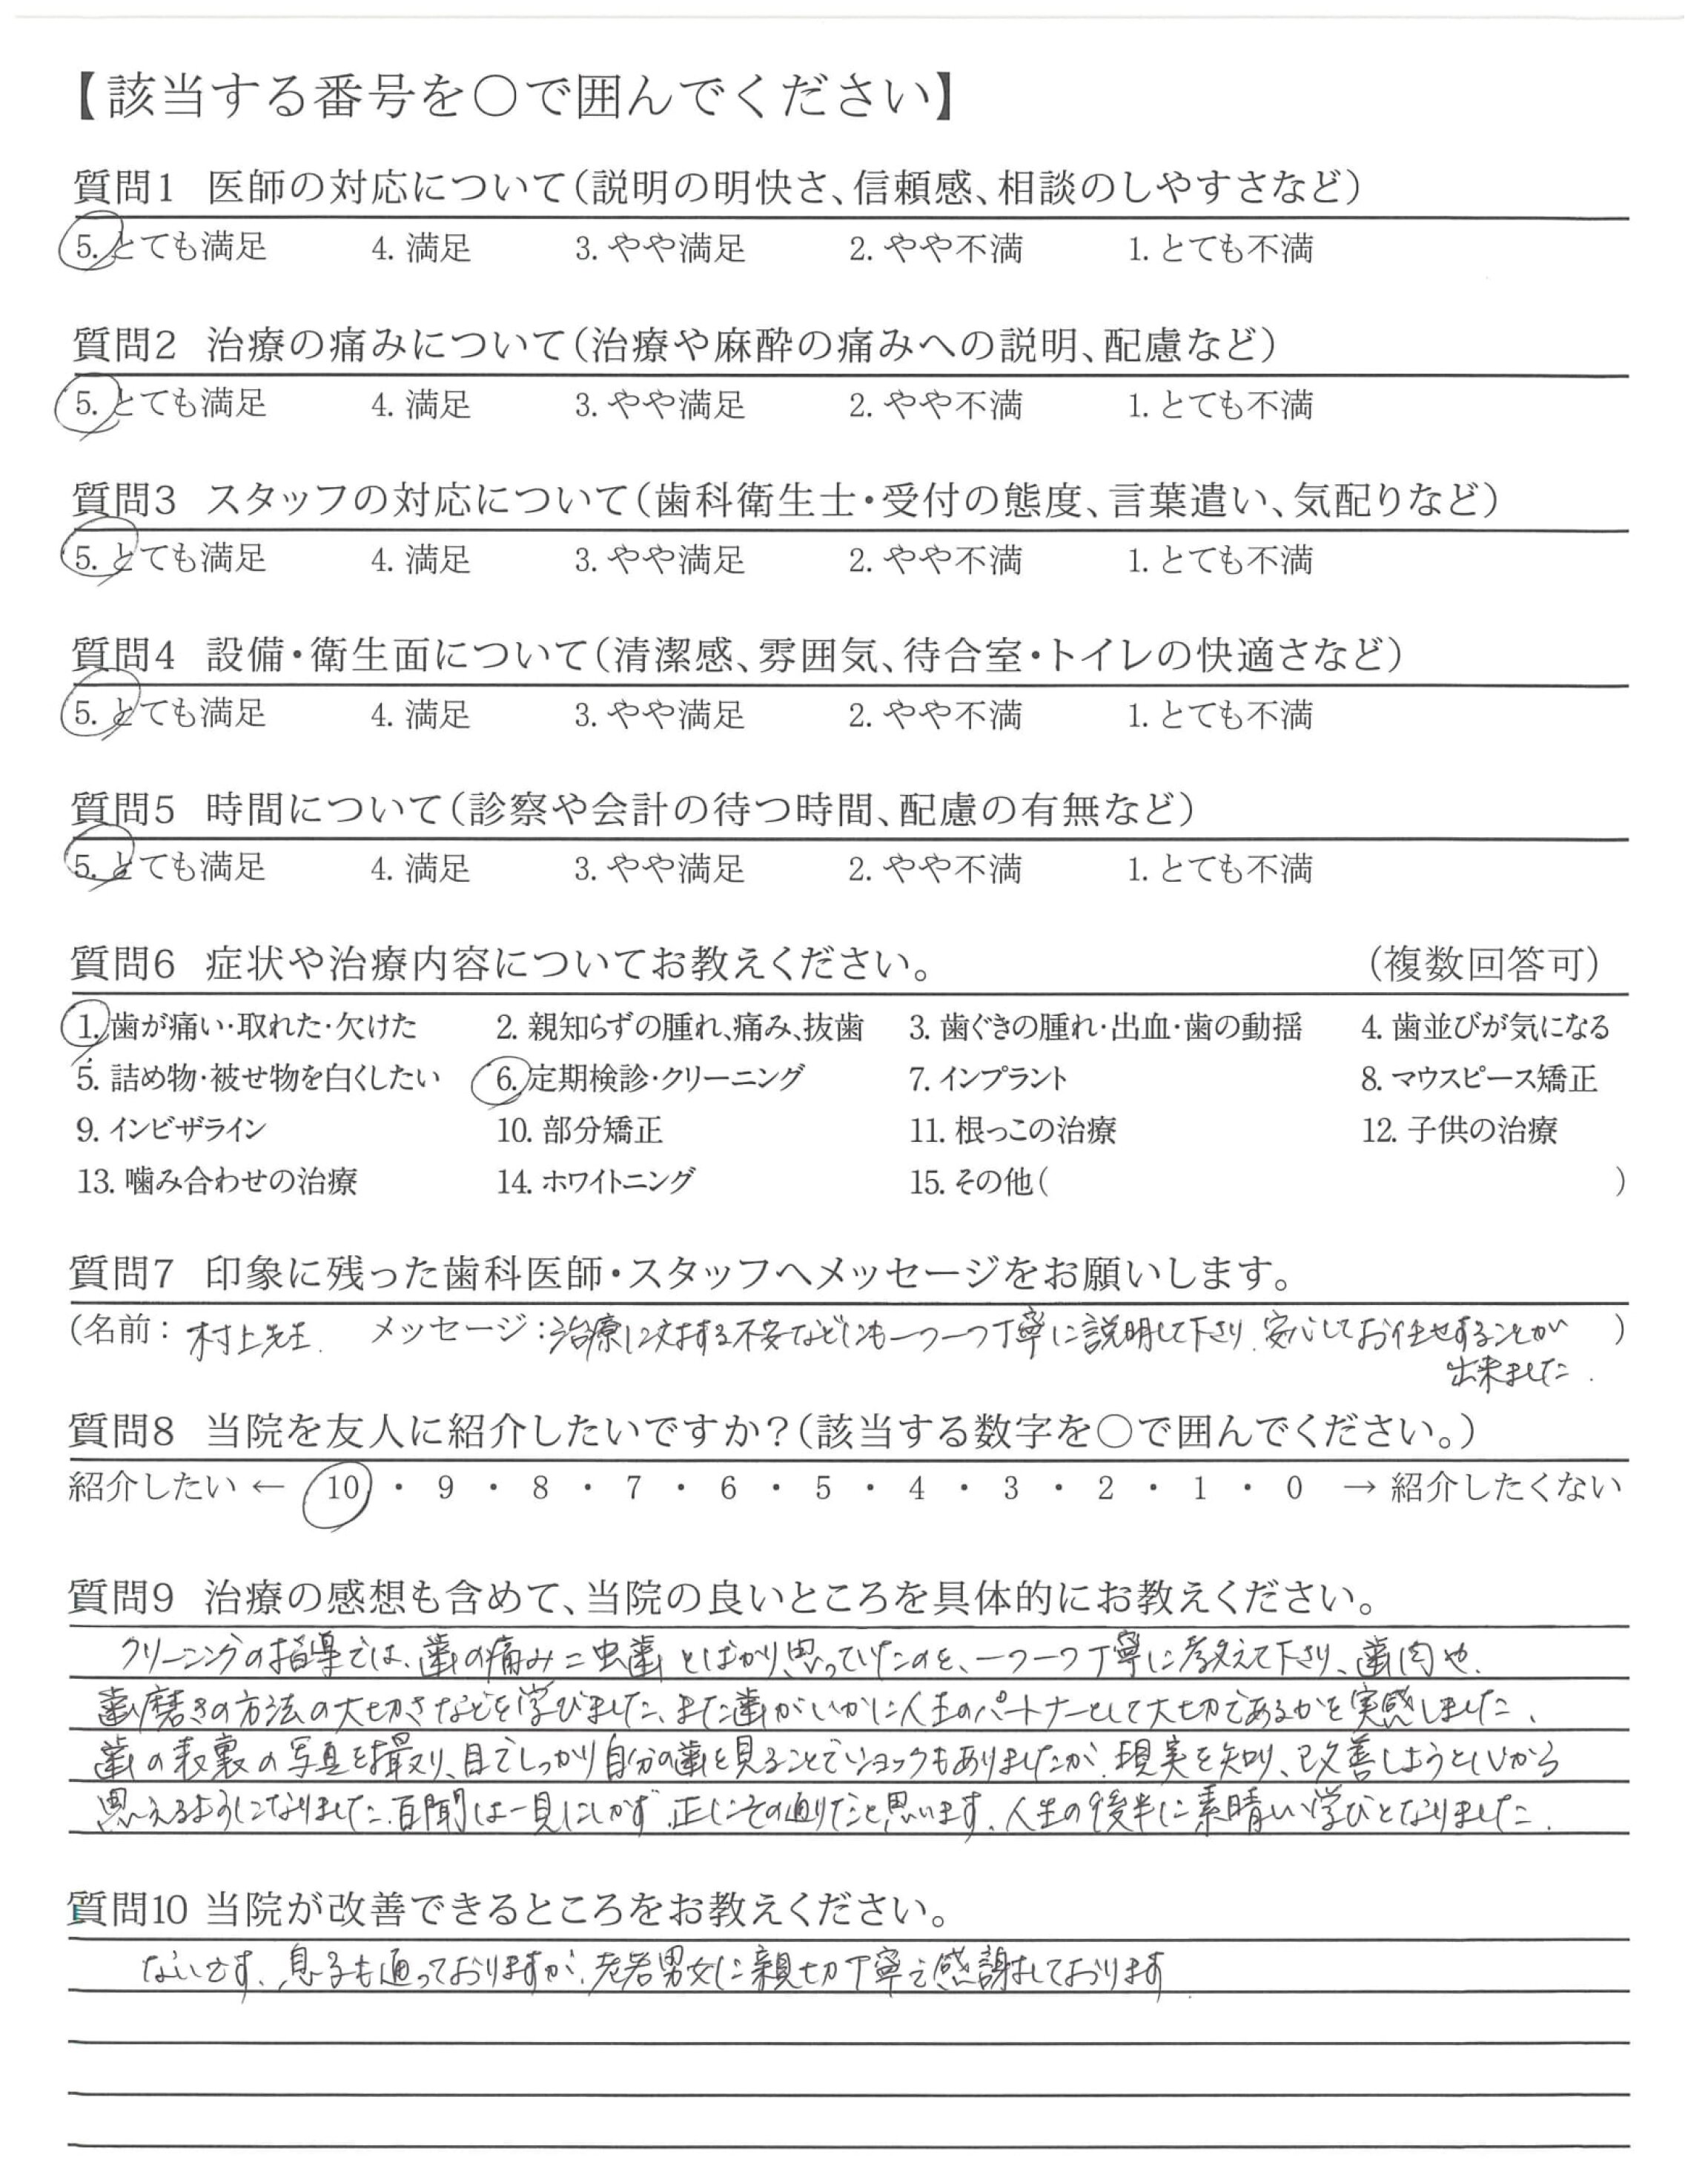 【該当する番号を○で囲んでください】
質問1 医師の対応について(説明の明快さ、信頼感、相談のしやすさなど)
5. とても満足 4. 満足 3. やや満足 2. やや不満 1. とても不満
質問2 治療の痛みについて(治療や麻酔の痛みへの説明、配慮など)
5. とても満足 4. 満足 3. やや満足 2. やや不満 1. とても不満
質問3 スタッフの対応について(歯科衛生士・受付の態度、言葉遣い、気配りなど)
5. とても満足 4. 満足 3. やや満足 2. やや不満 1. とても不満
質問4 設備・衛生面について(清潔感、雰囲気、待合室・トイレの快適さなど)
5. とても満足 4. 満足 3. やや満足 2. やや不満 1. とても不満
質問5 時間について(診察や会計の待つ時間、配慮の有無など)
5. とても満足 4. 満足 3. やや満足 2. やや不満 1. とても不満
質問6 症状や治療内容についてお教えください。 (複数回答可)
1. 歯が痛い・取れた・欠けた 2. 親知らずの腫れ、痛み、抜歯 3. 歯ぐきの腫れ・出血・歯の動揺 4. 歯並びが気になる
5. 詰め物・被せ物を白くしたい 6. 定期検診・クリーニング 7. インプラント 8. マウスピース矯正
9. インビザライン 10. 部分矯正 11. 根っこの治療 12. 子供の治療
13. 噛み合わせの治療 14. ホワイトニング 15. その他( )
質問7 印象に残った歯科医師・スタッフへメッセージをお願いします。
(名前: 村上先生. メッセージ: 治療に対する不安などにも一つ一つ丁寧に説明して下さり、安心してお任せすることが )
出来ました.
質問8 当院を友人に紹介したいですか?(該当する数字を○で囲んでください。)
紹介したい ← 10 ・ 9 ・ 8 ・ 7 ・ 6 ・ 5 ・ 4 ・ 3 ・ 2 ・ 1 ・ 0 → 紹介したくない
質問9 治療の感想も含めて、当院の良いところを具体的にお教えください。
クリーニングの指導では、歯の痛み=虫歯とばかり思っていたのを、一つ一つ丁寧に教えて下さり、歯肉や、
歯磨きの方法の大切さなどを学びました、また歯がいかに人生のパートナーとして大切であるかを実感しました、
歯の表裏の写真を撮り、目でしっかり自分の歯を見ることでショックもありましたが、現実を知り、改善しようと
思えるようになりました.百聞は一見にしかず、正にその通りだと思います、人生の後半に素晴しい学びとなりました.
質問10 当院が改善できるところをお教えください。
ないです、息子も通っておりますが、老若男女に親切丁寧で感謝しております.